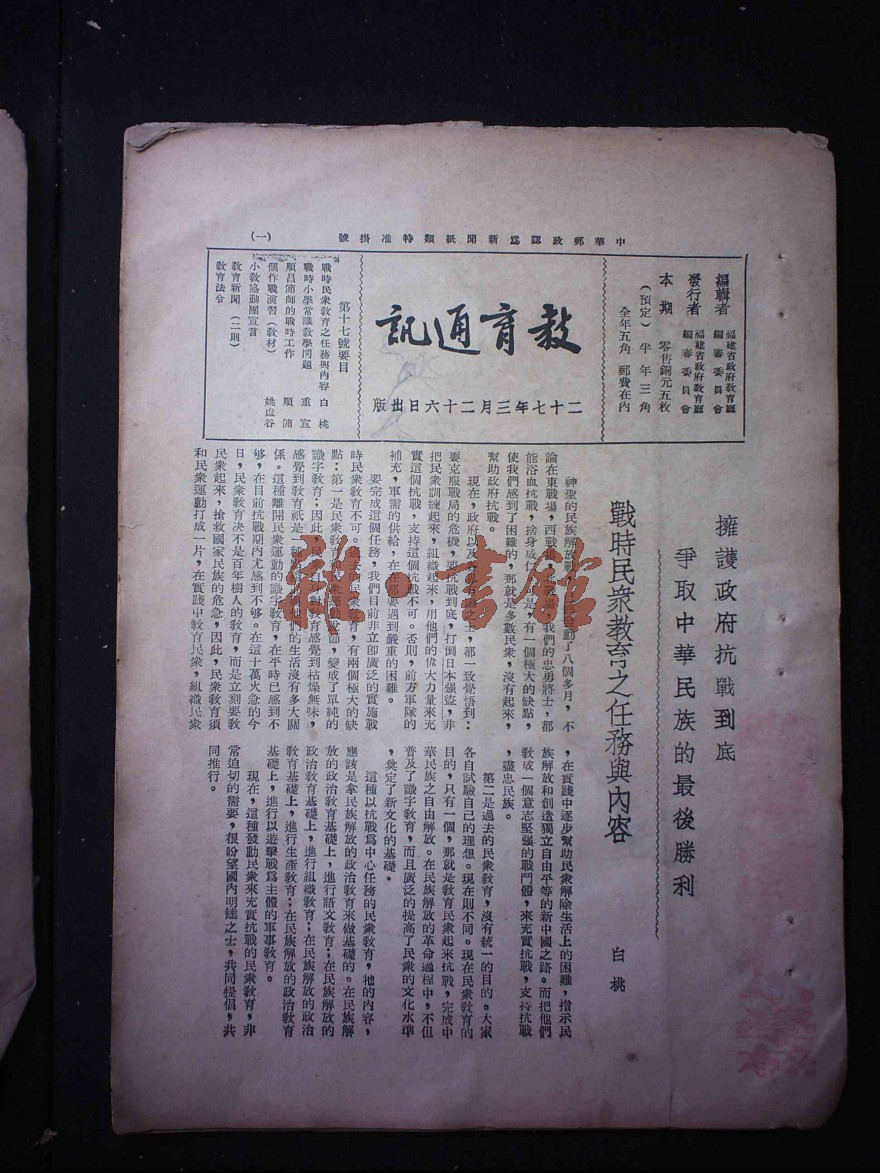 中華郵政認為新聞紙類特准掛號
(一)
編輯者 福建省政府教育廳編審委員會
發行者 福建省政府教育廳編審委員會
本期 零售銅元五枚
(預定) 半年三角
全年五角 郵費在內
教育通訊
二十七年三月二十六日出版
第十七號要目
戰時民衆教育之任務與內容 白桃
戰時小學常識教學問題 重宣
順昌簡師的戰時工作 順簡
個作戰演習(教材) 姚虛谷
小教協動團宣言
教育新聞(二則)
教育法令
擁護政府抗戰到底
爭取中華民族的最後勝利
戰時民衆教育之任務與內容
白桃
神聖的民族解放戰動了八個多月,不
論在東戰場,西戰場,我們的忠勇將士,都
能浴血抗戰,捨身成仁是,有一個極大的缺點,
使我們感到了困難的,那就是多數民衆,沒有起來,
幫助政府抗戰。
現在,政府以及之士,都一致覺悟到:
要克服戰局的危機,要抗戰到底,打倒日本強盜,非
把民衆訓練起來,組織起來,用他們的偉大力量來充
實這個抗戰,支持這個抗戰不可。否則,前方軍隊的
補充,軍需的供給,在在都要遇到嚴重的困難。
要完成這個任務,我們目前非立即廣泛的實施戰
時民衆教育不可。過去的民衆教育,有兩個極大的缺
點:第一是民衆教育民衆運動脫節,變成了單純的
識字教育;因此,民對教育感覺到枯燥無味,
感覺到教育祇是一種的生活沒有多大關
係。這種離開民衆運動的識字教育,在平時已感到不
够,在目前抗戰期內尤感到不够。在這十萬火急的今
日,民衆教育決不是百年樹人的教育,而是立刻要教
民衆起來,搶救國家民族的危急,因此,民衆教育須
和民衆運動打成一片,在實踐中教育民衆,組織民衆
,在實踐中逐步幫助民衆解除生活上的困難,指示民
族解放和創造獨立自由平等的新中國之路。而把他們
教成一個意志堅強的戰鬥體,來充實抗戰,支持抗戰
,盡忠民族。
第二是過去的民衆教育,沒有統一的目的。大家
各自試驗自己的理想。現在則不同。現在民衆教育的
目的,只有一個,那就是教育民衆起來抗戰,完成中
華民族之自由解放。在民族解放的革命過程中,不但
普及了識字教育,而且廣泛的提高了民衆的文化水準
,奠定了新文化的基礎。
這種以抗戰爲中心任務的民衆教育,牠的內容,
應該是拿民族解放的政治教育來做基礎的。在民族解
放的政治教育基礎上,進行語文教育;在民族解放的
政治教育基礎上,進行組織教育;在民族解放的政治
教育基礎上,進行生產教育;在民族解放的政治教育
基礎上,進行以遊擊戰爲主體的軍事教育。
現在,這種發動民衆來充實抗戰的民衆教育,非
常迫切的需要,很盼望國內明達之士,共同提倡,共
同推行。
雜·書館